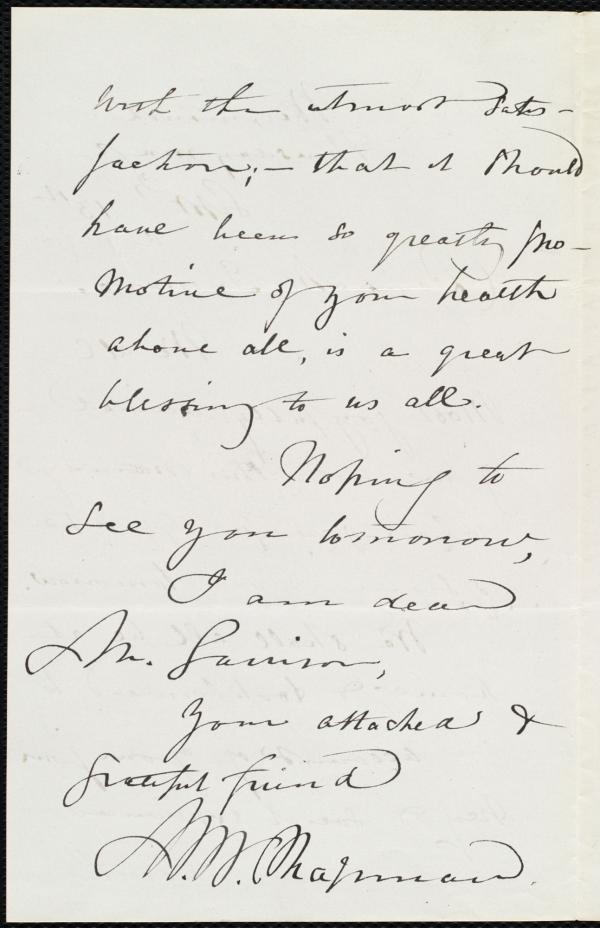 with the utmost satis-
faction; - that it should
have been so greatly pro-
motive of your health
above all, is a great
blessing to us all.
Hoping to
see you tomorrow,
I am dear
Mr. Garrison,
Your attached &
grateful friend
M. W. Chapman.